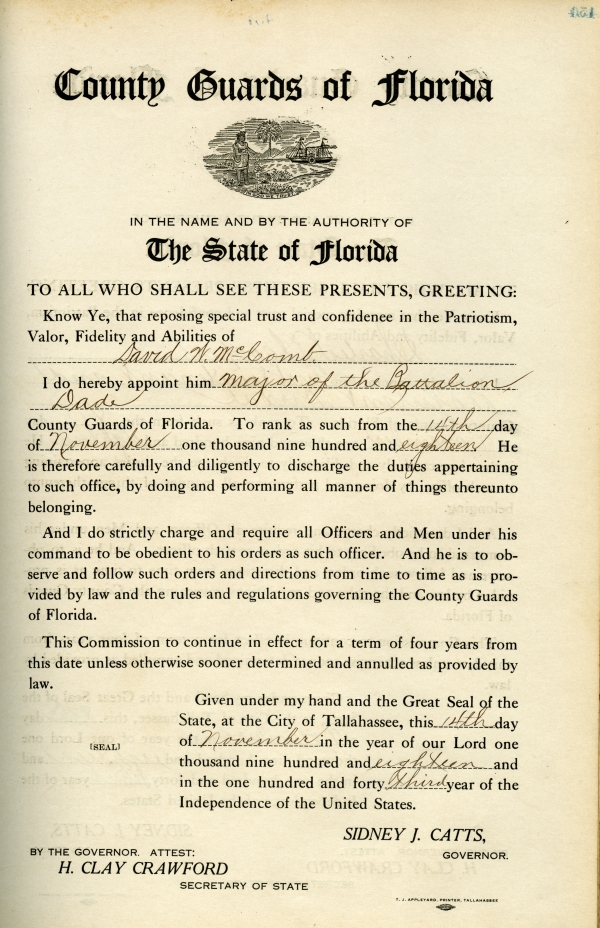 450
County Guards of Florida
IN GOD WE TRUST
IN THE NAME AND BY THE AUTHORITY OF
The State of Florida
TO ALL WHO SHALL SEE THESE PRESENTS, GREETING:
Know Ye, that reposing special trust and confidence in the Patriotism,
Valor, Fidelity and Abilities of
David W. McComb
I do hereby appoint him major of the Battalion
Dade
County Guards of Florida. To rank as such from the 14th day
of November one thousand nine hundred and eighteen He
is therefore carefully and diligently to discharge the duties appertaining
to such office, by doing and performing all manner of things thereunto
belonging.
And I do strictly charge and require all Officers and Men under his
command to be obedient to his orders as such officer. And he is to ob-
serve and follow such orders and directions from time to time as is pro-
vided by law and the rules and regulations governing the County Guards
of Florida.
This Commission to continue in effect for a term of four years from
this date unless otherwise sooner determined and annulled as provided by
law.
Given under my hand and the Great Seal of the
State, at the City of Tallahassee, this 14th day
[SEAL] of November in the year of our Lord one
thousand nine hundred and eighteen and
in the one hundred and forty third year of the
Independence of the United States.
SIDNEY J. CATTS,
GOVERNOR.
BY THE GOVERNOR. ATTEST:
H. CLAY CRAWFORD
SECRETARY OF STATE
T. J. APPLEYARD, PRINTER, TALLAHASSEE